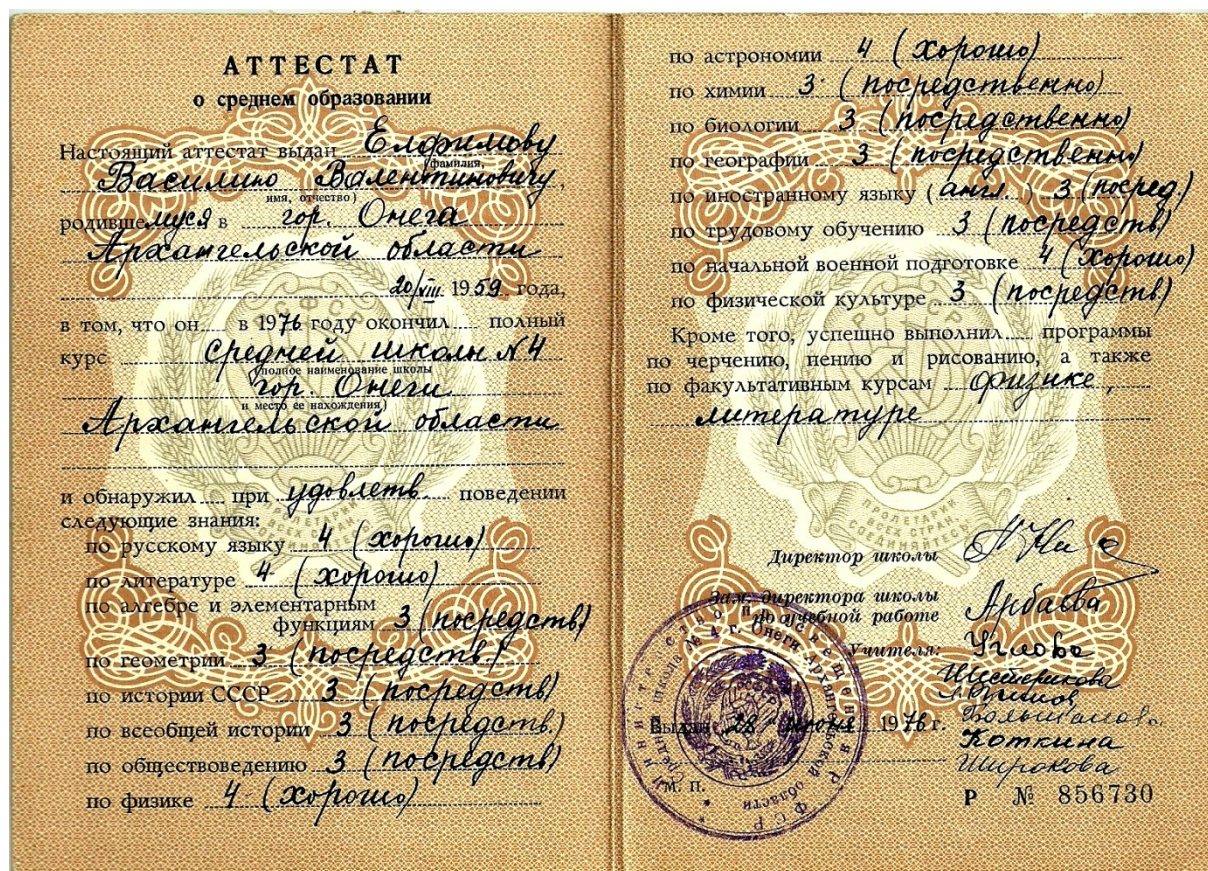 АТТЕСТАТ
о среднем образовании
Настоящий аттестат выдан Елфимову
(фамилия,
Василию Валентиновичу,
имя, отчество)
родившемуся в гор. Онега
Архангельской области
20/VIII 1959 года,
в том, что он в 1976 году окончил полный
курс средней школы №4
(полное наименование школы
гор. Онеги
и место ее нахождения)
Архангельской области
и обнаружил при удовлетв. поведении
следующие знания:
по русскому языку 4 (хорошо)
по литературе 4 (хорошо)
по алгебре и элементарным
функциям 3 (посредств)
по геометрии 3 (посредств.)
по истории СССР 3 (посредств)
по всеобщей истории 3 (посредств.)
по обществоведению 3 (посредств)
по физике 4 (хорошо)
по астрономии 4 (хорошо)
по химии 3 (посредственно)
по биологии 3 (посредственно)
по географии 3 (посредственно)
по иностранному языку (англ.) 3 (посред.)
по трудовому обучению 3 (посредств)
по начальной военной подготовке 4 (хорошо)
по физической культуре 3 (посредств.)
Кроме того, успешно выполнил программы
по черчению, пению и рисованию, а также
по факультативным курсам физике,
литературе
РСФСР
ПРОЛЕТАРИИ
ВСЕХ СТРАН,
СОЕДИНЯЙТЕСЬ!
Директор школы
Зам. директора школы
по учебной работе Арбаева
Учителя: Углова
Шестерикова
Коткина
Широкова
Министерство просвещения РСФСР
Средняя школа № 4 г. Онеги Архангельской области
Выдан „28" июня 1976 г.
М. П.
Р № 856730